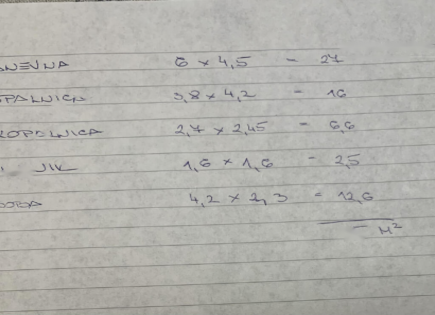 DNEVNA 6 x 4,5 - 27
SPALNICA 3,8 x 4,2 - 16
KOPOLNICA 2,7 x 2,45 - 6,6
1,6 x 1,6 - 2,5
SOBA 4,2 x 2,3 - 12,6
- M²